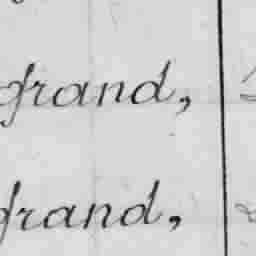 grand,
grand,